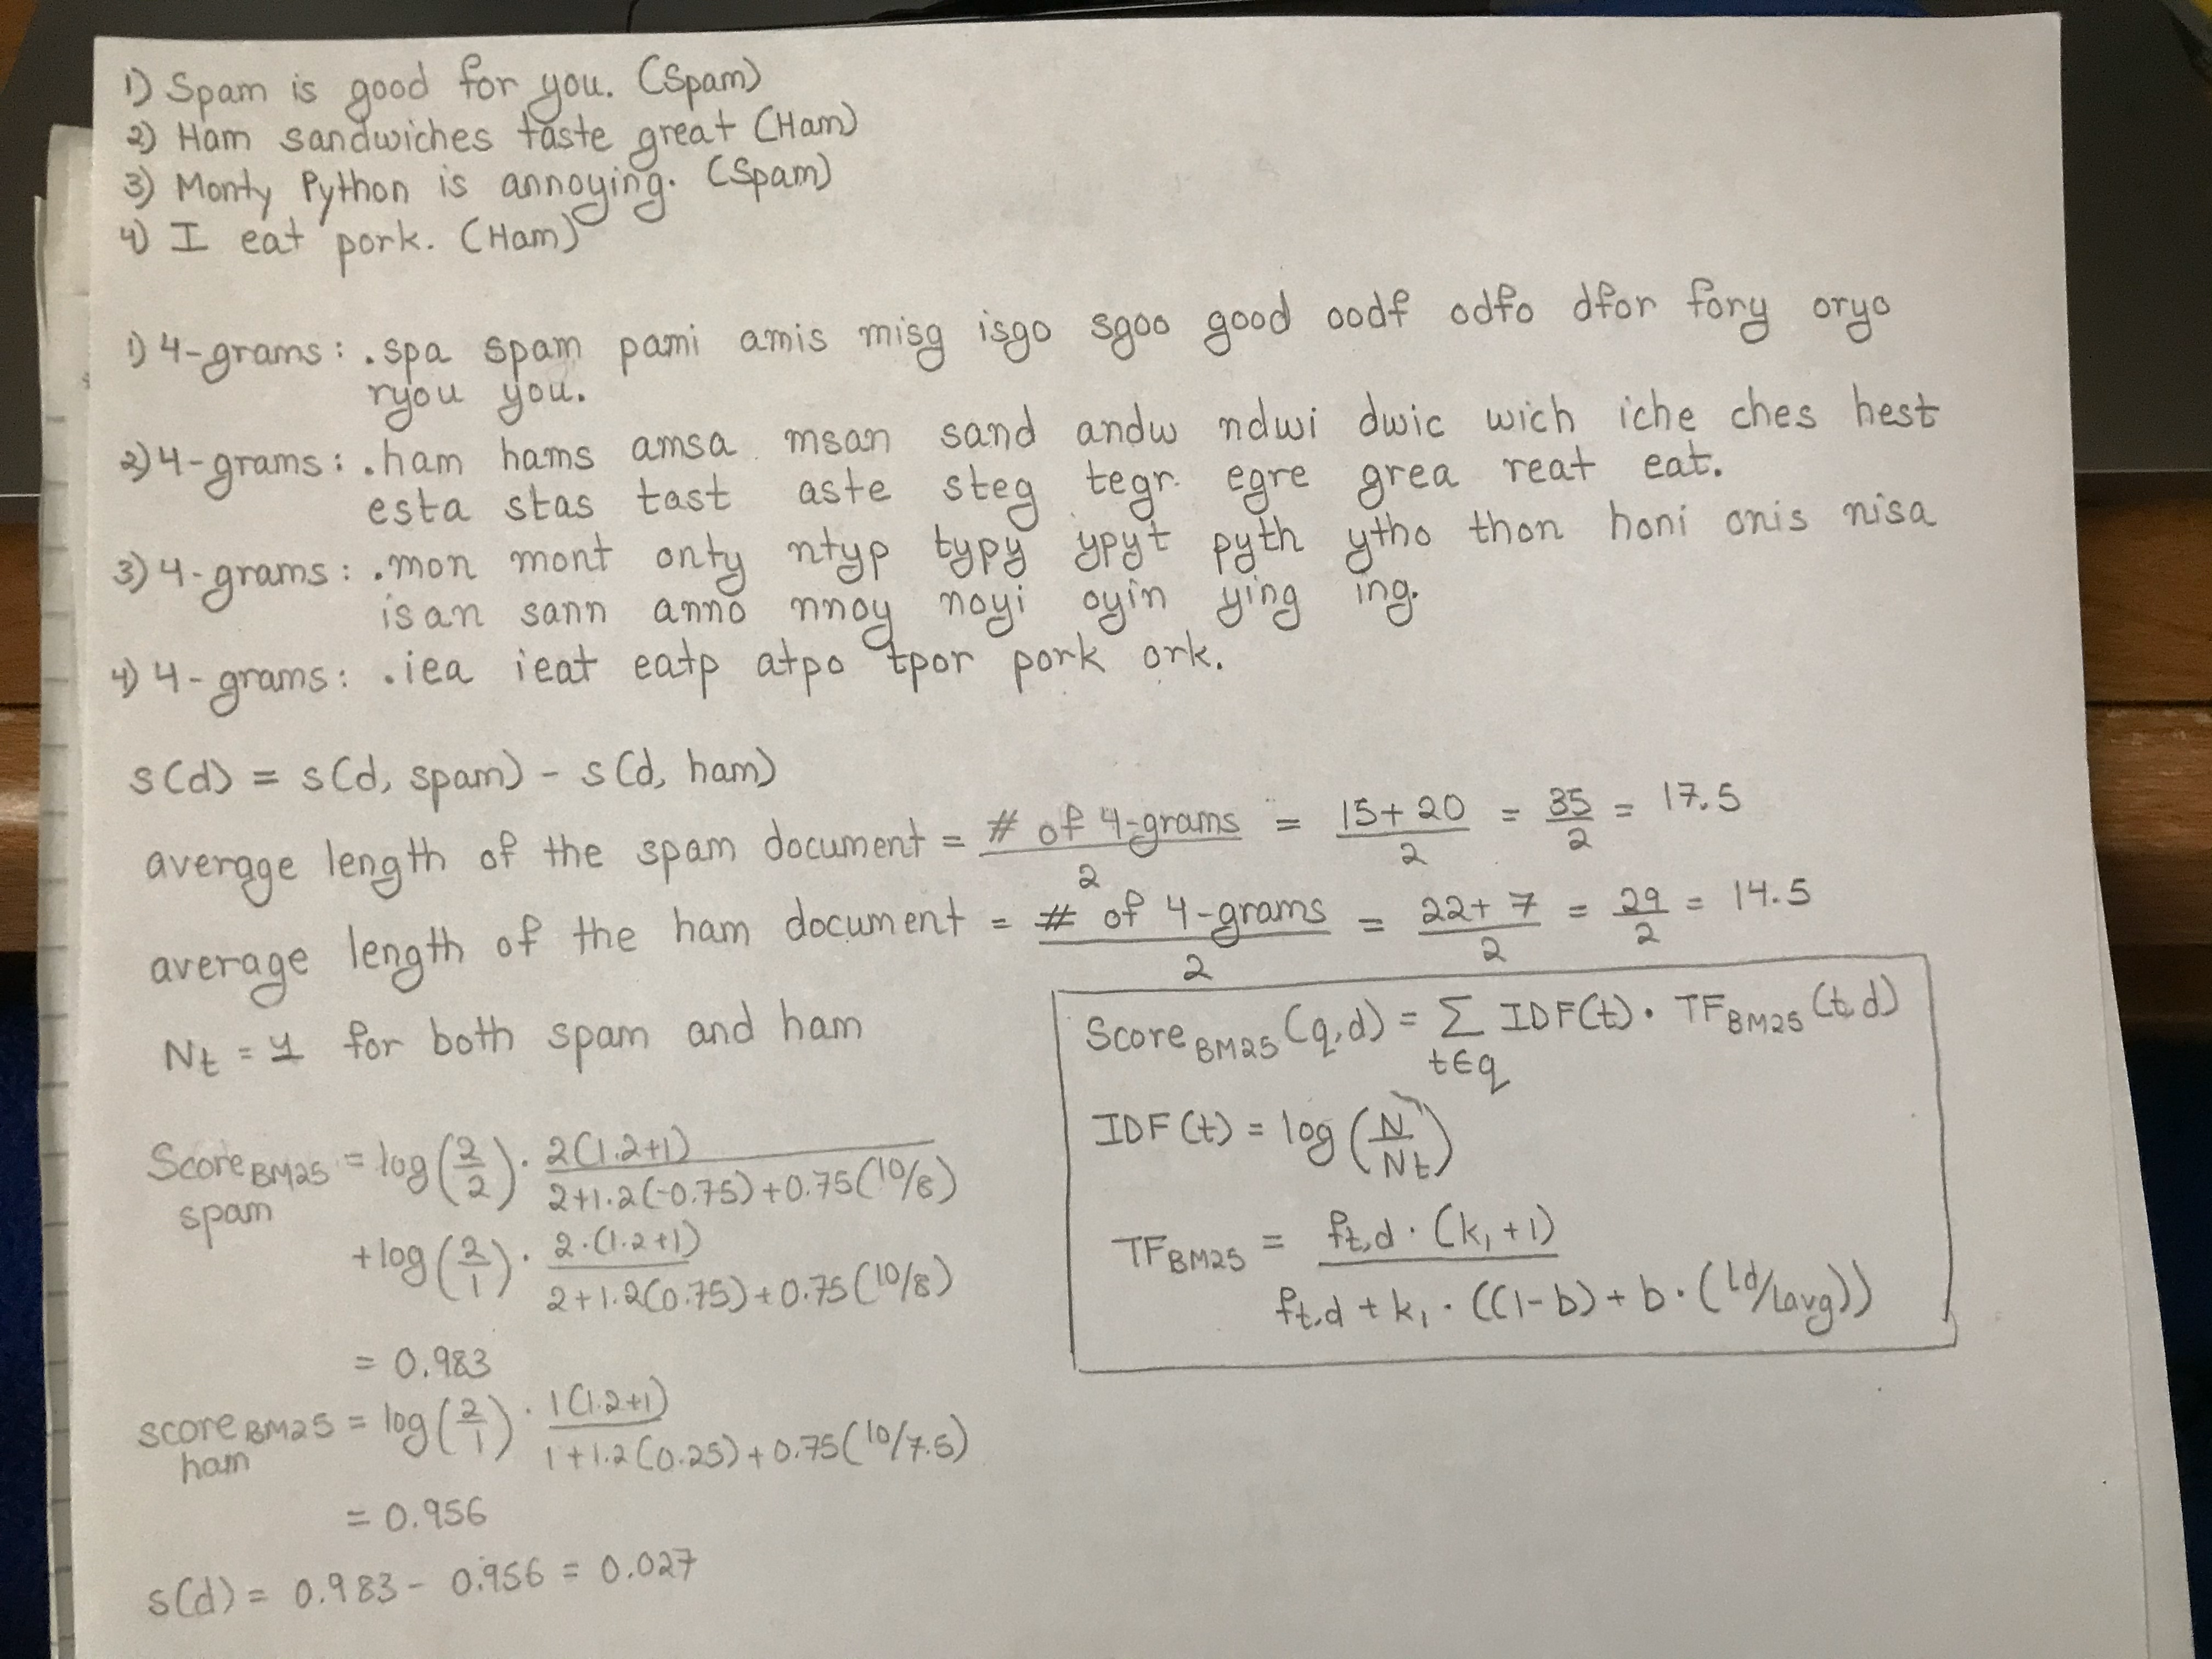 1) Spam is good for you. (Spam)
2) Ham sandwiches taste great (Ham)
3) Monty Python is annoying. (Spam)
4) I eat pork. (Ham)
1) 4-grams: .spa spam pami amis misg isgo sgoo good oodf odfo dfor fory oryo
ryou you.
2) 4-grams: .ham hams amsa msan sand andw ndwi dwic wich iche ches hest
esta stas tast aste steg tegr egre grea reat eat.
3) 4-grams: .mon mont onty ntyp typy ypyt pyth ytho thon honi onis nisa
isan sann anno nnoy noyi oyin ying ing.
4) 4-grams: .iea ieat eatp atpo tpor pork ork.
s(d) = s(d, spam) - s(d, ham)
average length of the spam document = # of 4-grams / 2 = 15+20 / 2 = 35/2 = 17.5
average length of the ham document = # of 4-grams / 2 = 22+7 / 2 = 29/2 = 14.5
Nt = 1 for both spam and ham
Score BM25 spam = log(2/2) · 2(1.2+1) / 2+1.2(-0.75)+0.75(10/8)
+log(2/1) · 2·(1.2+1) / 2+1.2(0.75)+0.75(10/8)
= 0.983
score BM25 ham = log(2/1) · 1(1.2+1) / 1+1.2(0.25)+0.75(10/7.5)
= 0.956
s(d) = 0.983 - 0.956 = 0.027
Score BM25 (q,d) = Σ t∈q IDF(t) · TF BM25 (t,d)
IDF(t) = log(N/Nt)
TF BM25 = ft,d · (k1+1) / ft,d + k1 · ((1-b) + b · (ld/lavg))